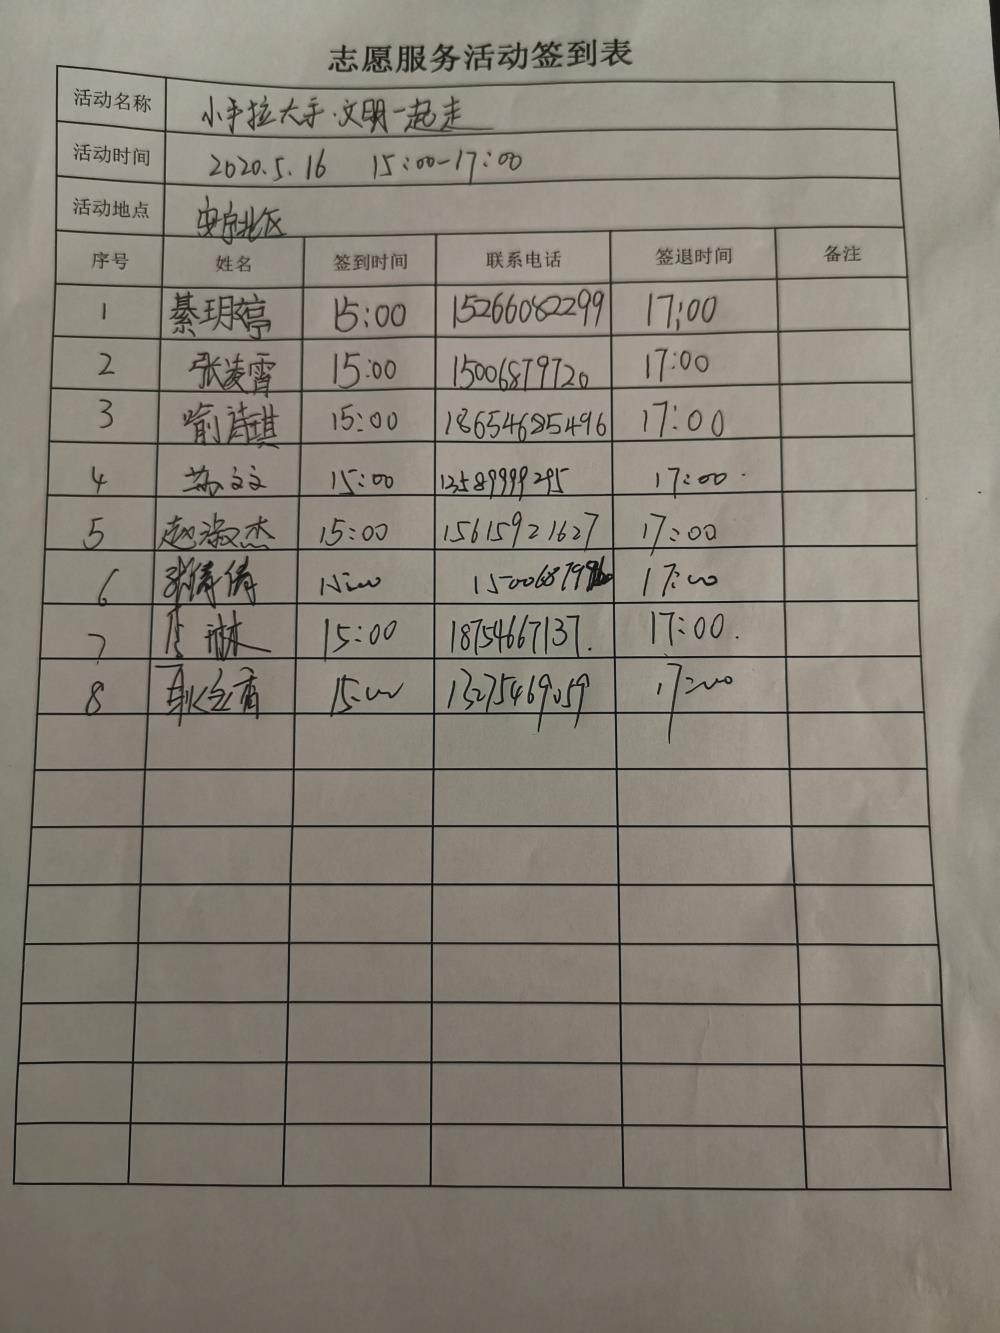 志愿服务活动签到表
活动名称 小手拉大手·文明一起走
活动时间 2020.5.16 15:00-17:00
活动地点 安宁北区
序号 姓名 签到时间 联系电话 签退时间 备注
1 綦玥婷 15:00 15266082299 17:00
2 张凌霄 15:00 15006879720 17:00
3 喻诗琪 15:00 18654685496 17:00
4 苏文文 15:00 13589999295 17:00
5 赵淑杰 15:00 15615921627 17:00
6 张倩倩 15:00 17:00
7 15:00 18754667137. 17:00.
8 15:00 13275469059 17:00